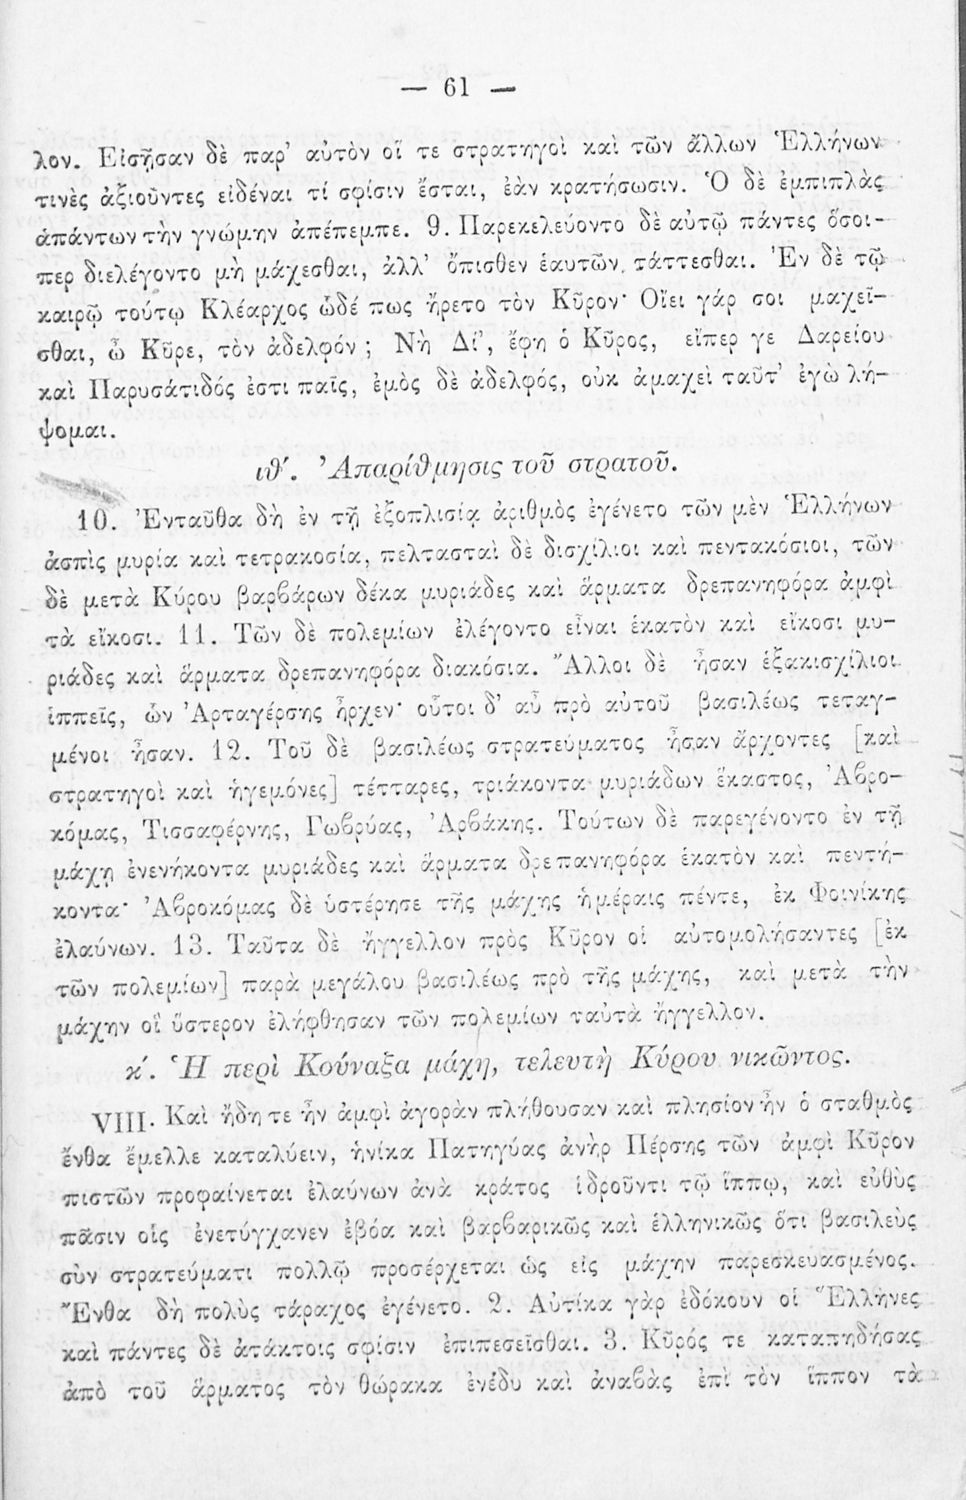 — 61 —
λον. Εἰσῇσαν δὲ παρ’ αὐτὸν οἵ τε στρατηγοὶ καὶ τῶν ἄλλων Ἑλλήνων
τινὲς ἀξιοῦντες εἰδέναι τί σφίσιν ἔσται, ἐὰν κρατήσωσιν. Ὁ δὲ ἐμπιπλὰς
ἁπάντων τὴν γνώμην ἀπέπεμπε. 9. Παρεκελεύοντο δὲ αὐτῷ πάντες ὅσοι-
περ διελέγοντο μὴ μάχεσθαι, ἀλλ’ ὄπισθεν ἑαυτῶν τάττεσθαι. Ἐν δὲ τῷ
καιρῷ τούτῳ Κλέαρχος ὧδέ πως ἤρετο τὸν Κῦρον· Οἴει γάρ σοι μαχεῖ-
σθαι, ὦ Κῦρε, τὸν ἀδελφόν; Νὴ Δί’, ἔφη ὁ Κῦρος, εἴπερ γε Δαρείου
καὶ Παρυσάτιδός ἐστι παῖς, ἐμὸς δὲ ἀδελφός, οὐκ ἀμαχεὶ ταῦτ’ ἐγὼ λή-
ψομαι.
ιθ΄. Ἀπαρίθμησις τοῦ στρατοῦ.
10. Ἐνταῦθα δὴ ἐν τῇ ἐξοπλισίᾳ ἀριθμὸς ἐγένετο τῶν μὲν Ἑλλήνων
ἀσπὶς μυρία καὶ τετρακοσία, πελτασταὶ δὲ δισχίλιοι καὶ πεντακόσιοι, τῶν
δὲ μετὰ Κύρου βαρβάρων δέκα μυριάδες καὶ ἅρματα δρεπανηφόρα ἀμφὶ
τὰ εἴκοσι. 11. Τῶν δὲ πολεμίων ἐλέγοντο εἶναι ἑκατὸν καὶ εἴκοσι μυ-
ριάδες καὶ ἅρματα δρεπανηφόρα διακόσια. Ἄλλοι δὲ ἦσαν ἑξακισχίλιοι
ἱππεῖς, ὧν Ἀρταγέρσης ἦρχεν· οὗτοι δ’ αὖ πρὸ αὐτοῦ βασιλέως τεταγ-
μένοι ἦσαν. 12. Τοῦ δὲ βασιλέως στρατεύματος ἦσαν ἄρχοντες [καὶ
στρατηγοὶ καὶ ἡγεμόνες] τέτταρες, τριάκοντα μυριάδων ἕκαστος, Ἀβρο-
κόμας, Τισσαφέρνης, Γωβρύας, Ἀρβάκης. Τούτων δὲ παρεγένοντο ἐν τῇ
μάχῃ ἐνενήκοντα μυριάδες καὶ ἅρματα δρεπανηφόρα ἑκατὸν καὶ πεντή-
κοντα· Ἀβροκόμας δὲ ὑστέρησε τῆς μάχης ἡμέραις πέντε, ἐκ Φοινίκης
ἐλαύνων. 13. Ταῦτα δὲ ἤγγελλον πρὸς Κῦρον οἱ αὐτομολήσαντες [ἐκ
τῶν πολεμίων] παρὰ μεγάλου βασιλέως πρὸ τῆς μάχης, καὶ μετὰ τὴν
μάχην οἳ ὕστερον ἐλήφθησαν τῶν πολεμίων ταὐτὰ ἤγγελλον.
κ΄. Ἡ περὶ Κούναξα μάχη, τελευτὴ Κύρου νικῶντος.
VIII. Καὶ ἤδη τε ἦν ἀμφὶ ἀγορὰν πλήθουσαν καὶ πλησίον ἦν ὁ σταθμὸς
ἔνθα ἔμελλε καταλύειν, ἡνίκα Πατηγύας ἀνὴρ Πέρσης τῶν ἀμφὶ Κῦρον
πιστῶν προφαίνεται ἐλαύνων ἀνὰ κράτος ἱδροῦντι τῷ ἵππῳ, καὶ εὐθὺς
πᾶσιν οἷς ἐνετύγχανεν ἐβόα καὶ βαρβαρικῶς καὶ ἑλληνικῶς ὅτι βασιλεὺς
σὺν στρατεύματι πολλῷ προσέρχεται ὡς εἰς μάχην παρεσκευασμένος.
Ἔνθα δὴ πολὺς τάραχος ἐγένετο. 2. Αὐτίκα γὰρ ἐδόκουν οἱ Ἕλληνες
καὶ πάντες δὲ ἀτάκτοις σφίσιν ἐπιπεσεῖσθαι. 3. Κῦρός τε καταπηδήσας
ἀπὸ τοῦ ἅρματος τὸν θώρακα ἐνέδυ καὶ ἀναβὰς ἐπὶ τὸν ἵππον τὰ